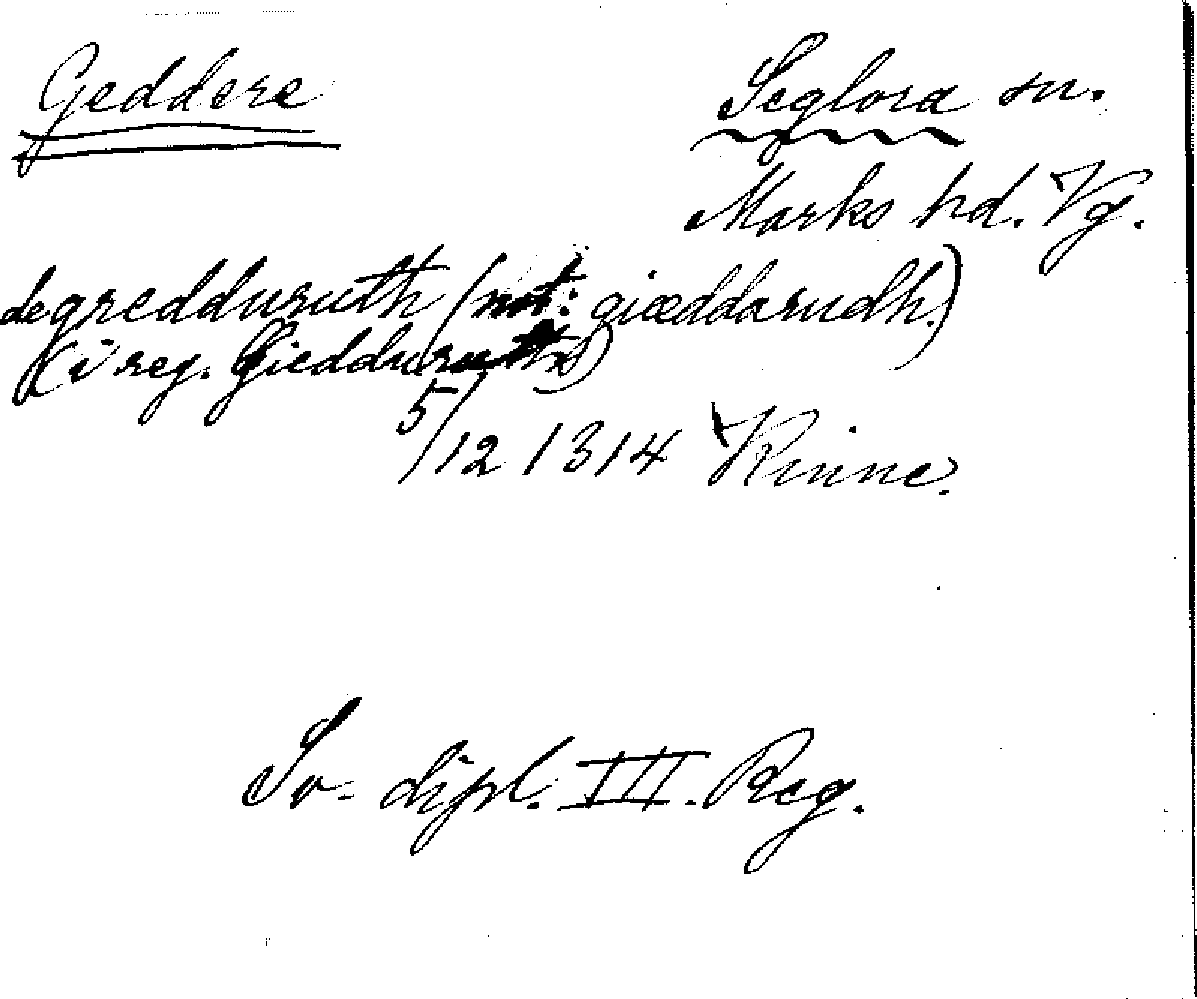 Geddere
Seglora sn.
Marks hd. Vg.
de gredduruth (not: giæddarudh.)
(i reg. Giedduruth)
5/12 1314 Kinne.
Sv. dipl. III. Reg.